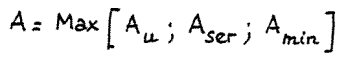 A = Max [ A_u ; A_ser ; A_min ]